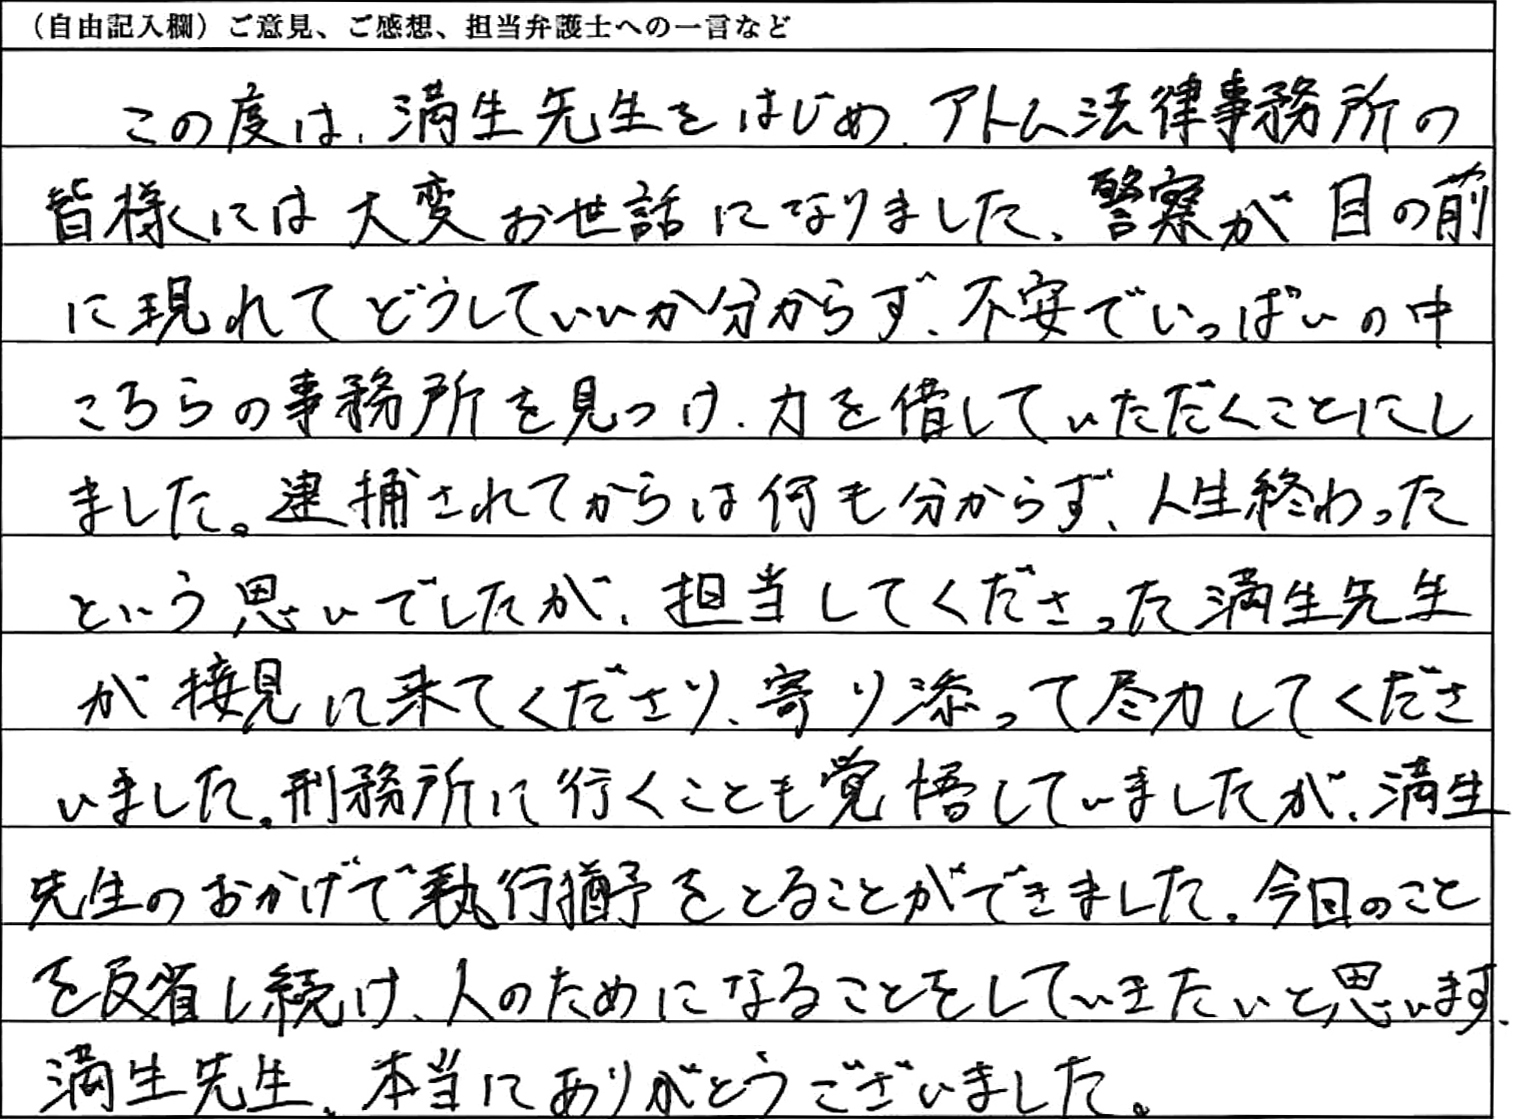 （自由記入欄）ご意見、ご感想、担当弁護士への一言など
この度は、満生先生をはじめ、アトム法律事務所の
皆様には大変お世話になりました。警察が目の前
に現れてどうしていいか分からず、不安でいっぱいの中
こちらの事務所を見つけ、力を借していただくことにし
ました。逮捕されてからは何も分からず、人生終わった
という思いでしたが、担当してくださった満生先生
が接見に来てくださり、寄り添って尽力してくださ
いました。刑務所に行くことも覚悟していましたが、満生
先生のおかげで執行猶予をとることができました。今回のこと
を反省し続け、人のためになることをしていきたいと思います。
満生先生、本当にありがとうございました。